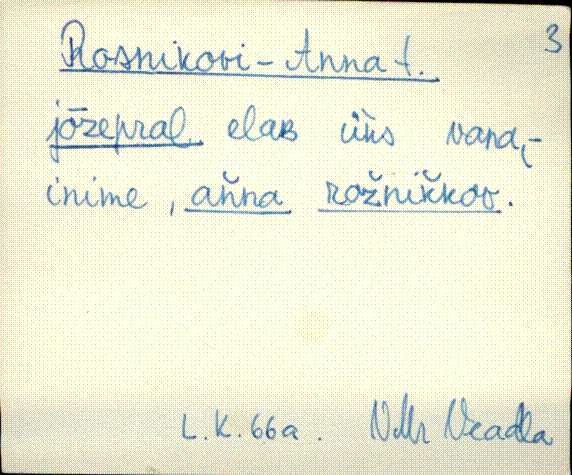 3
Rosnikovi-Anna t.
jōzepral elas üks vana,-
inime, ańna rožnikkov.
L.K. 66a. Vadla